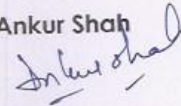 Ankur Shah
Ankur Shah